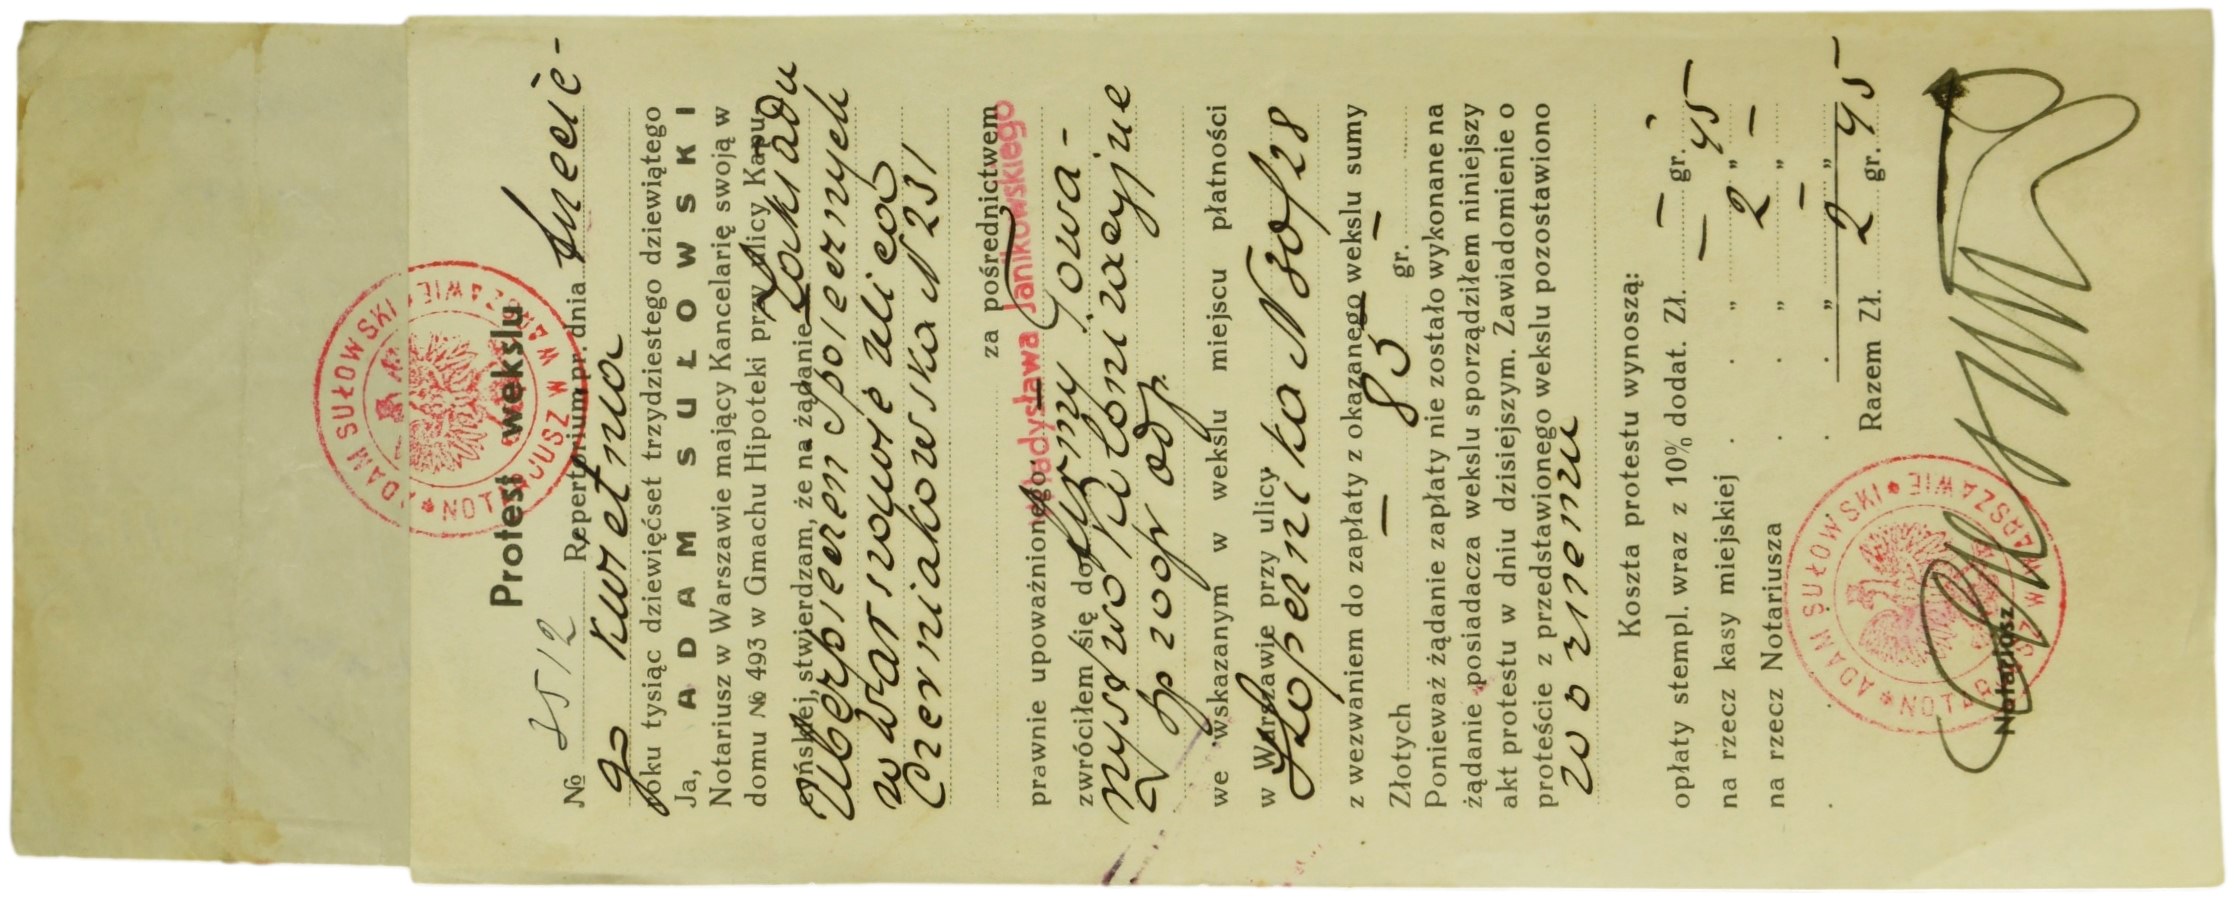 ADAM SUŁOWSKI
NOTARJUSZ W WARSZAWIE
Protest wekslu
№ 3512 Repertorium pr. dnia trzecie-
go kwietnia
roku tysiąc dziewięćset trzydziestego dziewiątego
Ja, ADAM SUŁOWSKI
Notariusz w Warszawie mający Kancelarię swoją w
domu № 493 w Gmachu Hipoteki przy ulicy Kapu
cyńskiej, stwierdzam, że na żądanie Zakładu
Ubezpieczeń Społecznych
w Warszawie ulica
Czerniakowska N 231
za pośrednictwem
prawnie upoważnionego Władysława Janikowskiego
zwróciłem się do firmy Towa-
rzystwo Kolonizacyjne
Sp z ogr odp.
we wskazanym w wekslu miejscu płatności
w Warszawie przy ulicy
Kopernika N 30/28
z wezwaniem do zapłaty z okazanego wekslu sumy
Złotych — 85 — gr.
Ponieważ żądanie zapłaty nie zostało wykonane na
żądanie posiadacza wekslu sporządziłem niniejszy
akt protestu w dniu dzisiejszym. Zawiadomienie o
proteście z przedstawionego wekslu pozostawiono
woźnemu
Koszta protestu wynoszą:
opłaty stempl. wraz z 10% dodat. Zł. — gr.
na rzecz kasy miejskiej . . " — " 45
na rzecz Notariusza . . " 2 " —
. . " — "
Razem Zł. 2 gr. 45
Notariusz
ADAM SUŁOWSKI
NOTARJUSZ W WARSZAWIE